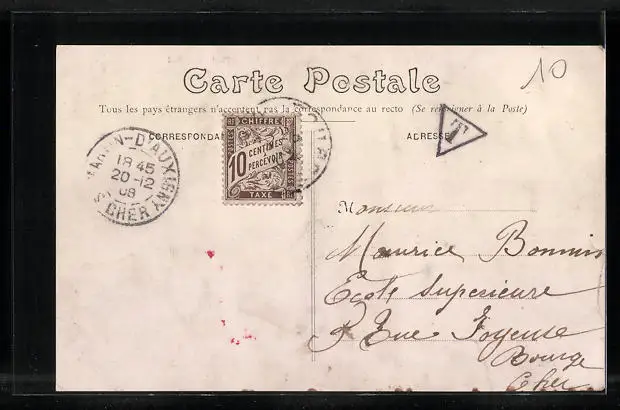 10
Carte Postale
Tous les pays étrangers n'acceptent pas la correspondance au recto (Se renseigner à la Poste)
CORRESPONDAN
ADRESSE
T
CHIFFRE
10 CENTIMES
À PERCEVOIR
TAXE
D'AUXIGNY
18 45
20-12
08
CHER
Monsieur
Maurice Bonnin
Ecole Superieure
Rue Joyeuse
Bourge
Cher